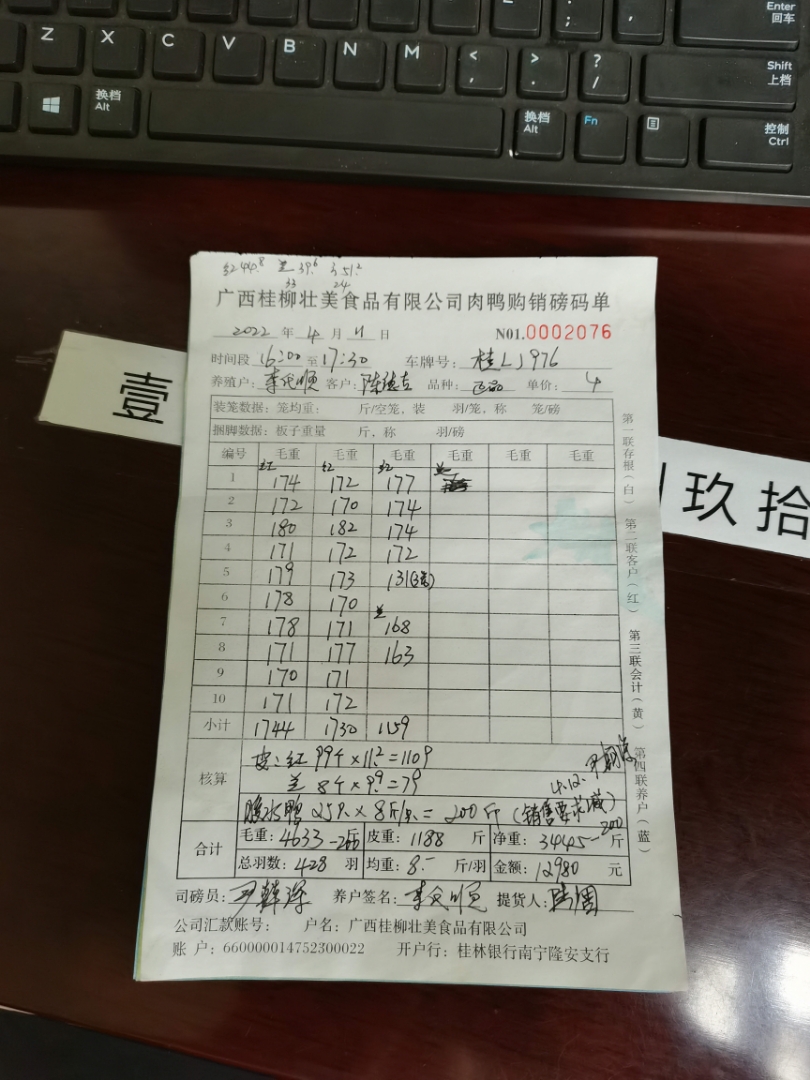 Enter
回车
Z X C V B N M < , > . ? /
Shift
上档
换档
Alt
换档
Alt
Fn
控制
Ctrl
红44.8 兰39.6 351.2
33 24
广西桂柳壮美食品有限公司肉鸭购销磅码单
2022 年 4 月 11 日 N01.0002076
时间段 16:00 至 17:30 车牌号: 桂LJ976
养殖户: 客户: 陈德吉 品种: 正品 单价: 4
装笼数据:笼均重: 斤/空笼,装 羽/笼,称 笼/磅
捆脚数据:板子重量 斤,称 羽/磅
编号 毛重 毛重 毛重 毛重 毛重 毛重
红 红 红 兰
1 174 172 177
2 172 170 174
3 180 182 174
4 171 172 172
5 179 173 131(3个)
6 178 170
兰
7 178 171 168
8 171 177 163
9 170 171
10 171 172
小计 1744 1730 1159
核算
皮:红 99个×11.2=1109
兰 8个×9.9=79
4.12.
25只×8斤/只=200斤(销售要求减)
合计
毛重:4633-200斤 皮重:1188 斤 净重:3445-200斤
总羽数:428 羽 均重:8.- 斤/羽 金额:12980 元
司磅员: 养户签名: 提货人:
公司汇款账号: 户名:广西桂柳壮美食品有限公司
账 户:660000014752300022 开户行:桂林银行南宁隆安支行
第一联存根(白) 第二联客户(红) 第三联会计(黄) 第四联养户(蓝)
壹
玖拾